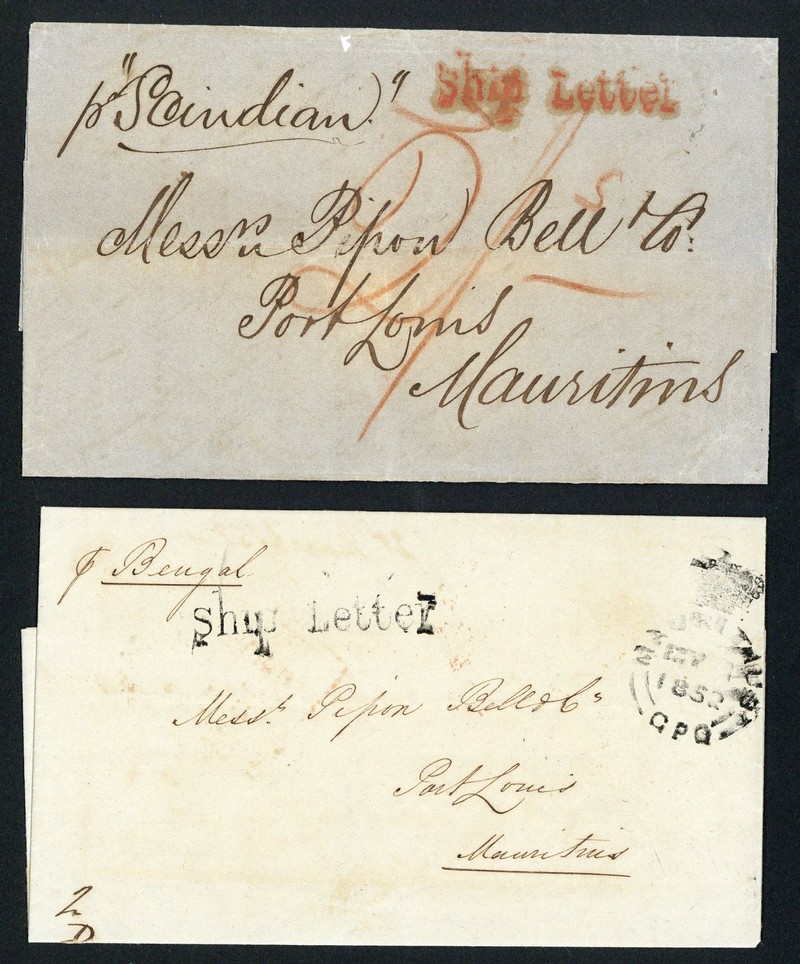 pr "Scindian." Ship Letter
2/ s
Messrs Pipon Bell & Co.
Port Louis
Mauritius
p Bengal
Ship Letter
MAURITIUS
1852
GPO
Messrs Pipon Bell & Co
Port Louis
Mauritius
2
D